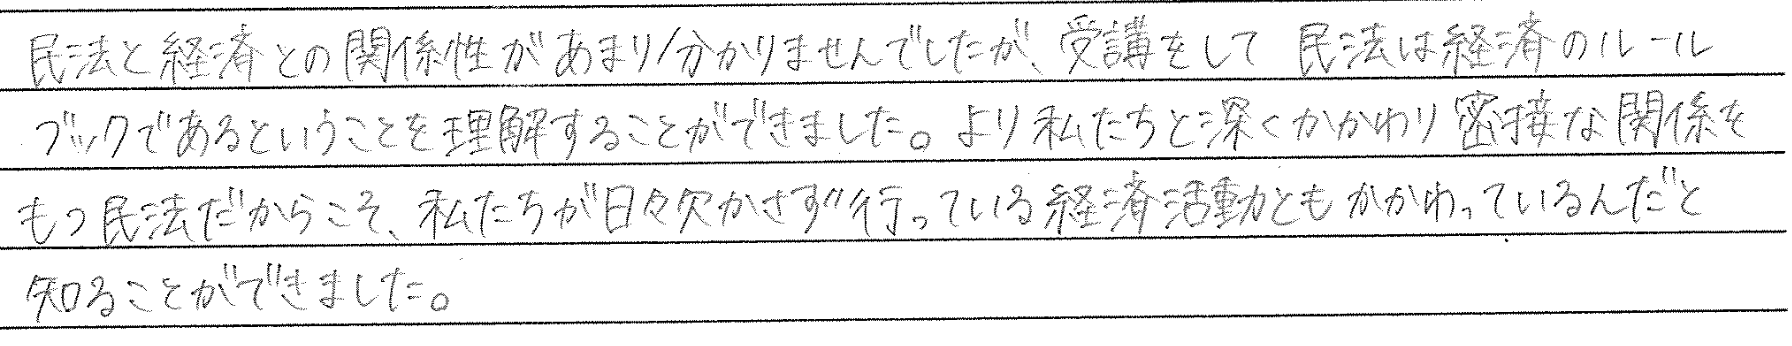 民法と経済との関係性があまり分かりませんでしたが、受講をして 民法は経済のルール
ブックであるということを理解することができました。より私たちと深くかかわり密接な関係を
もつ民法だからこそ、私たちが日々欠かさず行っている経済活動ともかかわっているんだと
知ることができました。